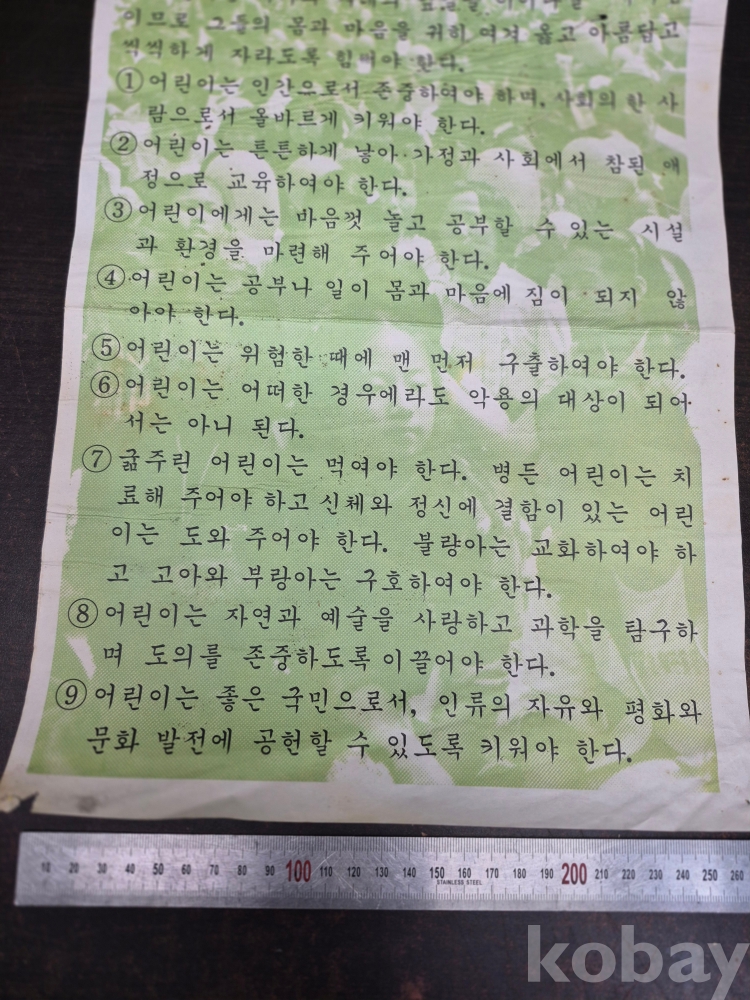 이므로 그들의 몸과 마음을 귀히 여겨 옳고 아름답고
씩씩하게 자라도록 힘써야 한다.
① 어린이는 인간으로서 존중하여야 하며, 사회의 한 사
람으로서 올바르게 키워야 한다.
② 어린이는 튼튼하게 낳아 가정과 사회에서 참된 애
정으로 교육하여야 한다.
③ 어린이에게는 마음껏 놀고 공부할 수 있는 시설
과 환경을 마련해 주어야 한다.
④ 어린이는 공부나 일이 몸과 마음에 짐이 되지 않
아야 한다.
⑤ 어린이는 위험한 때에 맨 먼저 구출하여야 한다.
⑥ 어린이는 어떠한 경우에라도 악용의 대상이 되어
서는 아니 된다.
⑦ 굶주린 어린이는 먹여야 한다. 병든 어린이는 치
료해 주어야 하고 신체와 정신에 결함이 있는 어린
이는 도와 주어야 한다. 불량아는 교화하여야 하
고 고아와 부랑아는 구호하여야 한다.
⑧ 어린이는 자연과 예술을 사랑하고 과학을 탐구하
며 도의를 존중하도록 이끌어야 한다.
⑨ 어린이는 좋은 국민으로서, 인류의 자유와 평화와
문화 발전에 공헌할 수 있도록 키워야 한다.
10 20 30 40 50 60 70 80 90 100 110 120 130 140 150 160 170 180 190 200 210 220 230 240 250 260
STAINLESS STEEL
kobay